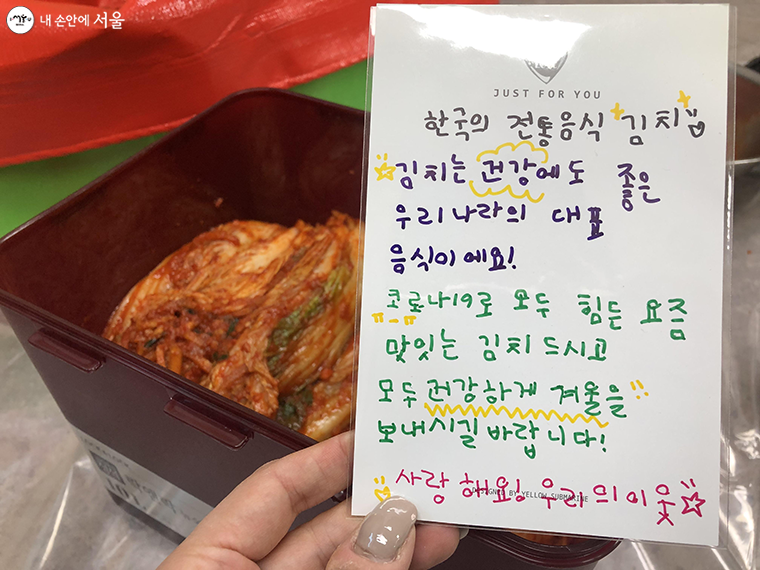 내 손안에 서울
JUST FOR YOU
한국의 전통음식 김치
김치는 건강에도 좋은
우리나라의 대표
음식이에요!
코로나19로 모두 힘든 요즘
ㅠ-ㅠ
맛있는 김치 드시고
모두 건강하게 겨울을
보내시길 바랍니다!
사랑해요! 우리의 이웃
DESIGNED BY YELLOW SUBMARINE